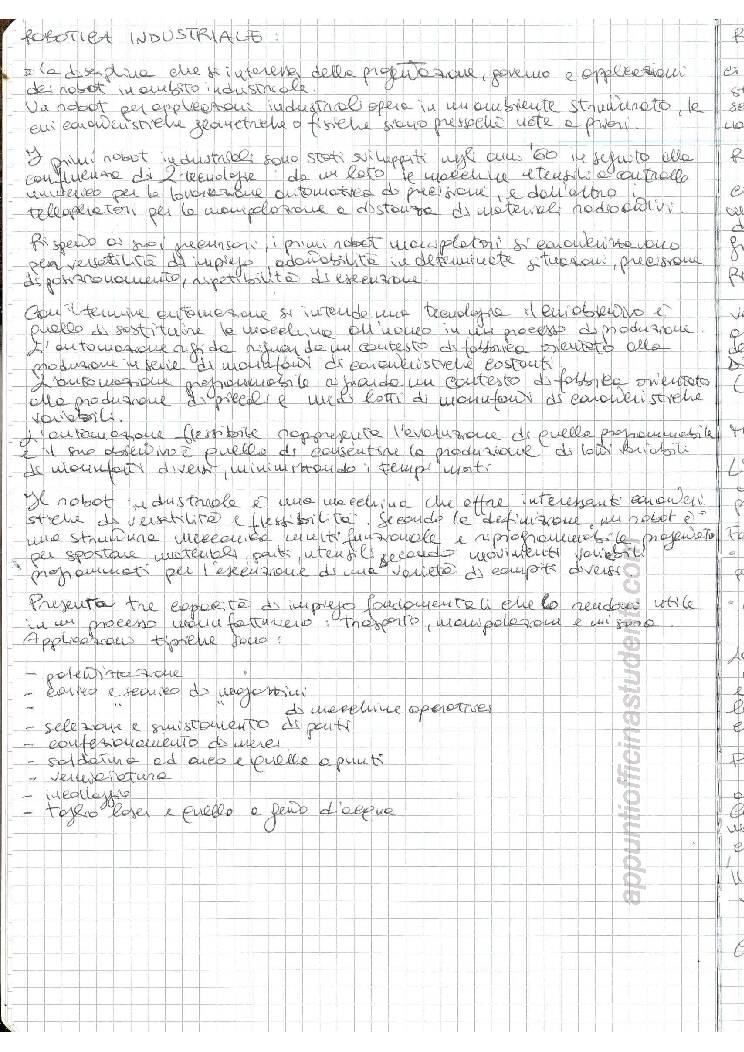 ROBOTICA INDUSTRIALE :
È la disciplina che si interessa della progettazione, governo e applicazioni
dei robot in ambito industriale.
Un robot per applicazioni industriali opera in un ambiente strutturato, le
cui caratteristiche geometriche o fisiche siano pressoché note a priori.
I primi robot industriali sono stati sviluppati negli anni '60 in seguito alla
confluenza di 2 tecnologie : da un lato le macchine utensili a controllo
numerico per la lavorazione automatica di precisione, e dall'altro i
teleoperatori per la manipolazione a distanza di materiali radioattivi.
Rispetto ai suoi precursori, i primi robot manipolatori si caratterizzavano
per versatilità di impiego, adattabilità in determinate situazioni, precisione
di posizionamento, ripetibilità di esecuzione.
Con il termine automazione si intende una tecnologia il cui obiettivo è
quello di sostituire la macchina all'uomo in un processo di produzione.
L'automazione rigida riguarda un contesto di fabbrica orientato alla
produzione in serie di manufatti di caratteristiche costanti.
L'automazione programmabile riguarda un contesto di fabbrica orientato
alla produzione di piccoli e medi lotti di manufatti di caratteristiche
variabili.
L'automazione flessibile rappresenta l'evoluzione di quella programmabile
e il suo obiettivo è quello di consentire la produzione di lotti variabili
di manufatti diversi, minimizzando i tempi morti
Il robot industriale è una macchina che offre interessanti caratteri
stiche di versatilità e flessibilità. Secondo la definizione, un robot è
una struttura meccanica multifunzionale e riprogrammabile progettato
per spostare materiali, parti, utensili secondo movimenti variabili
programmati per l'esecuzione di una varietà di compiti diversi
Presenta tre capacità di impiego fondamentali che lo rendono utile
in un processo manufatturiero : trasporto, manipolazione e misura.
Applicazioni tipiche sono :
- palettizzazione
- carico e scarico di magazzini
- " " " di macchine operatrici
- selezione e smistamento di parti
- confezionamento di merci
- saldatura ad arco e quella a punti
- verniciatura
- incollaggio
- taglio laser e quello a getto d'acqua
appuntiofficinastudenti.com